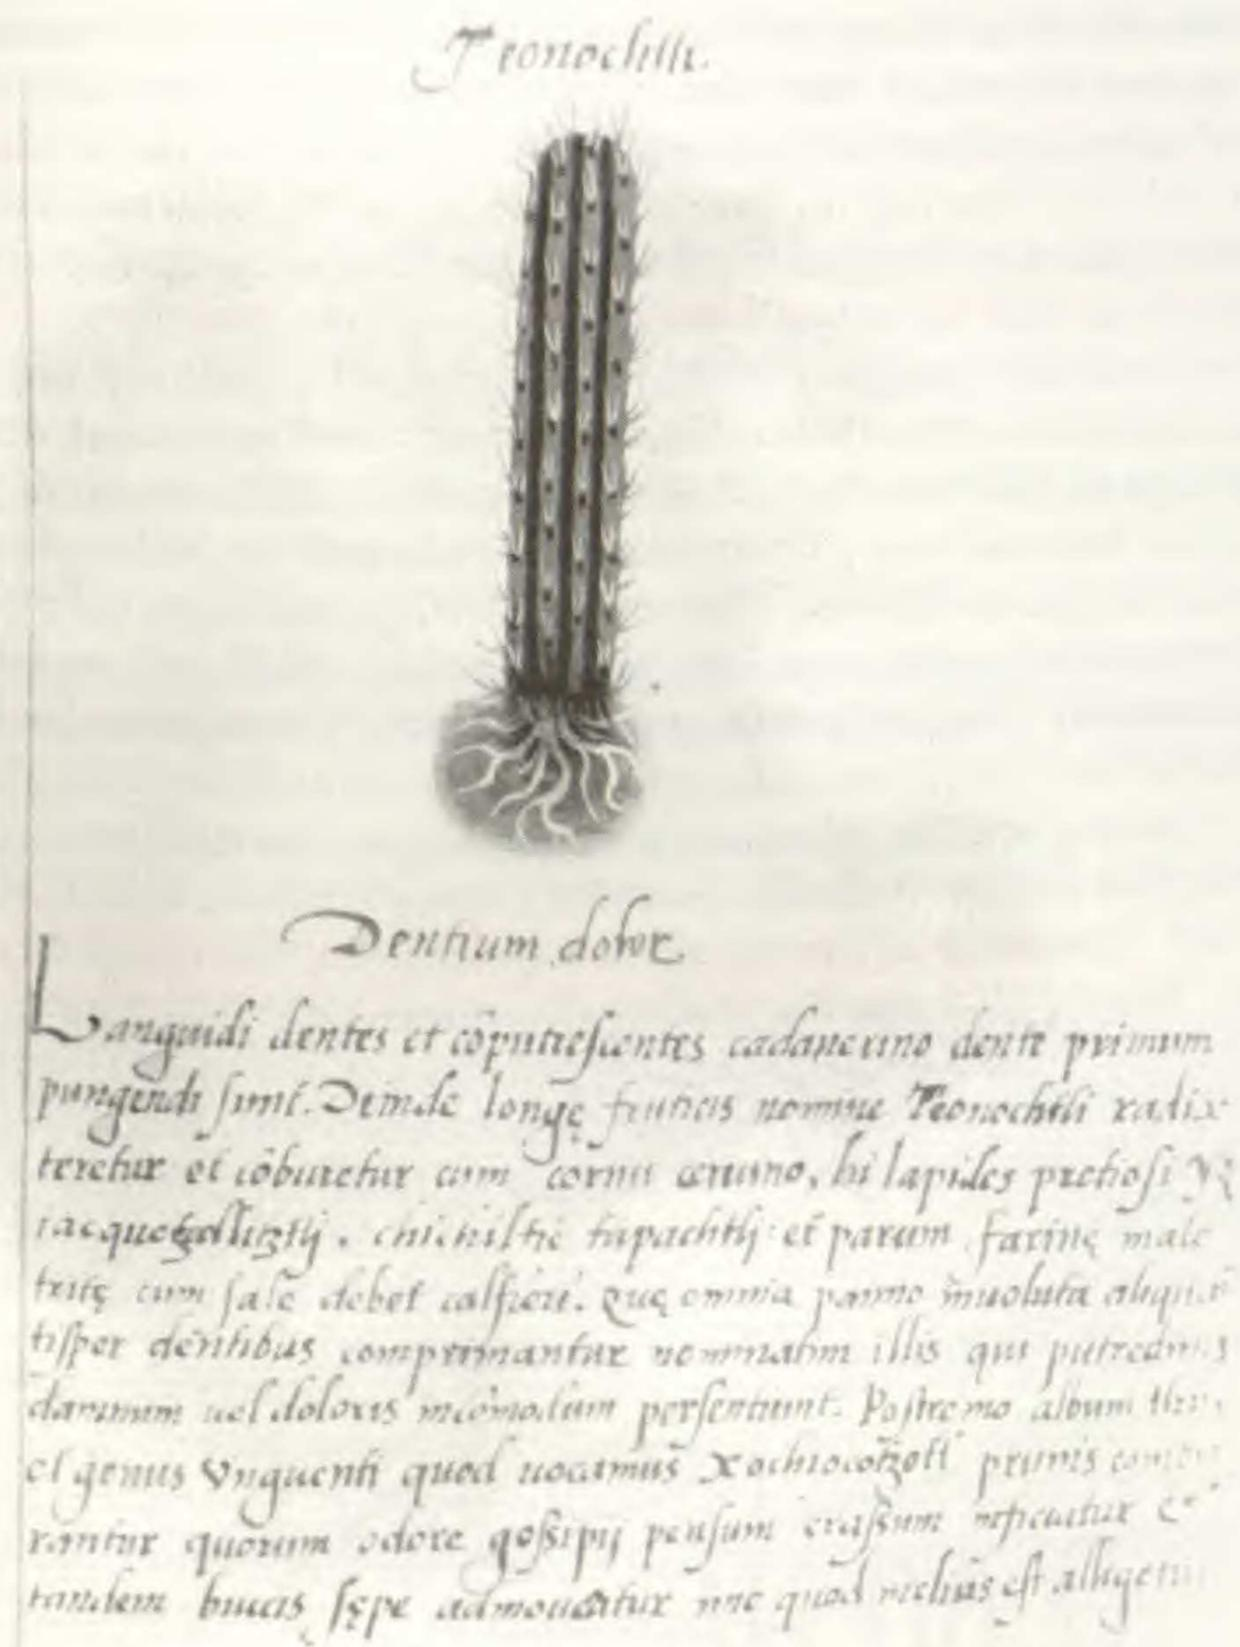 Teonochtli.
Dentium dolor
Languidi dentes et cōputrescentes cadauerino dente primum
pungendi sunt. Deinde longę fruticis nomine Teonochtli radix
teretur et cōburetur cum cornu ceruino, hi lapides pretiosi
chichiltic tapachtli et parum farinę male
tritę cum sale debet calfieri. Quę omnia panno inuoluta aliquā
tisper dentibus comprimantur nominatim illis qui putredinis
damnum uel doloris incōmodum persentiunt. Postremo album thus,
et genus Vnguenti quod uocamus Xochiocotzotl prunis
rantur quorum odore gossipij pensum crassum inficiatur et
tandem buccis sępe admoueatur quod melius est alligetur